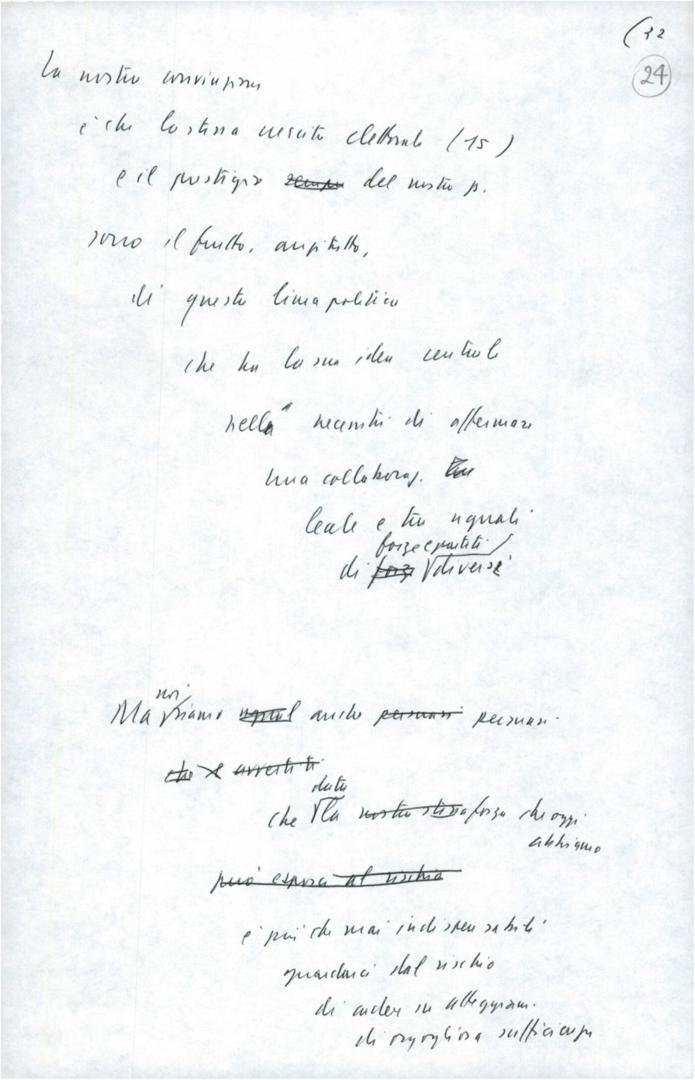 (32
24
La nostra convinzione
è che la stessa crescita elettorale (15)
e il prestigio sempre del nostro p.
sono il frutto, anzitutto,
di questa linea politica
che ha la sua idea centrale
nella necessità di affermare
una collaboraz. tra
leale e tra uguali
forze e partiti
di forze diverse
noi
Ma siamo anche persuasi persuasi
che avvertiti
data
che la nostra stessa forza che oggi
abbiamo
può esporci al rischio
è più che mai indispensabile
guardarci dal rischio
di cadere in atteggiam.
di orgogliosa sufficienza